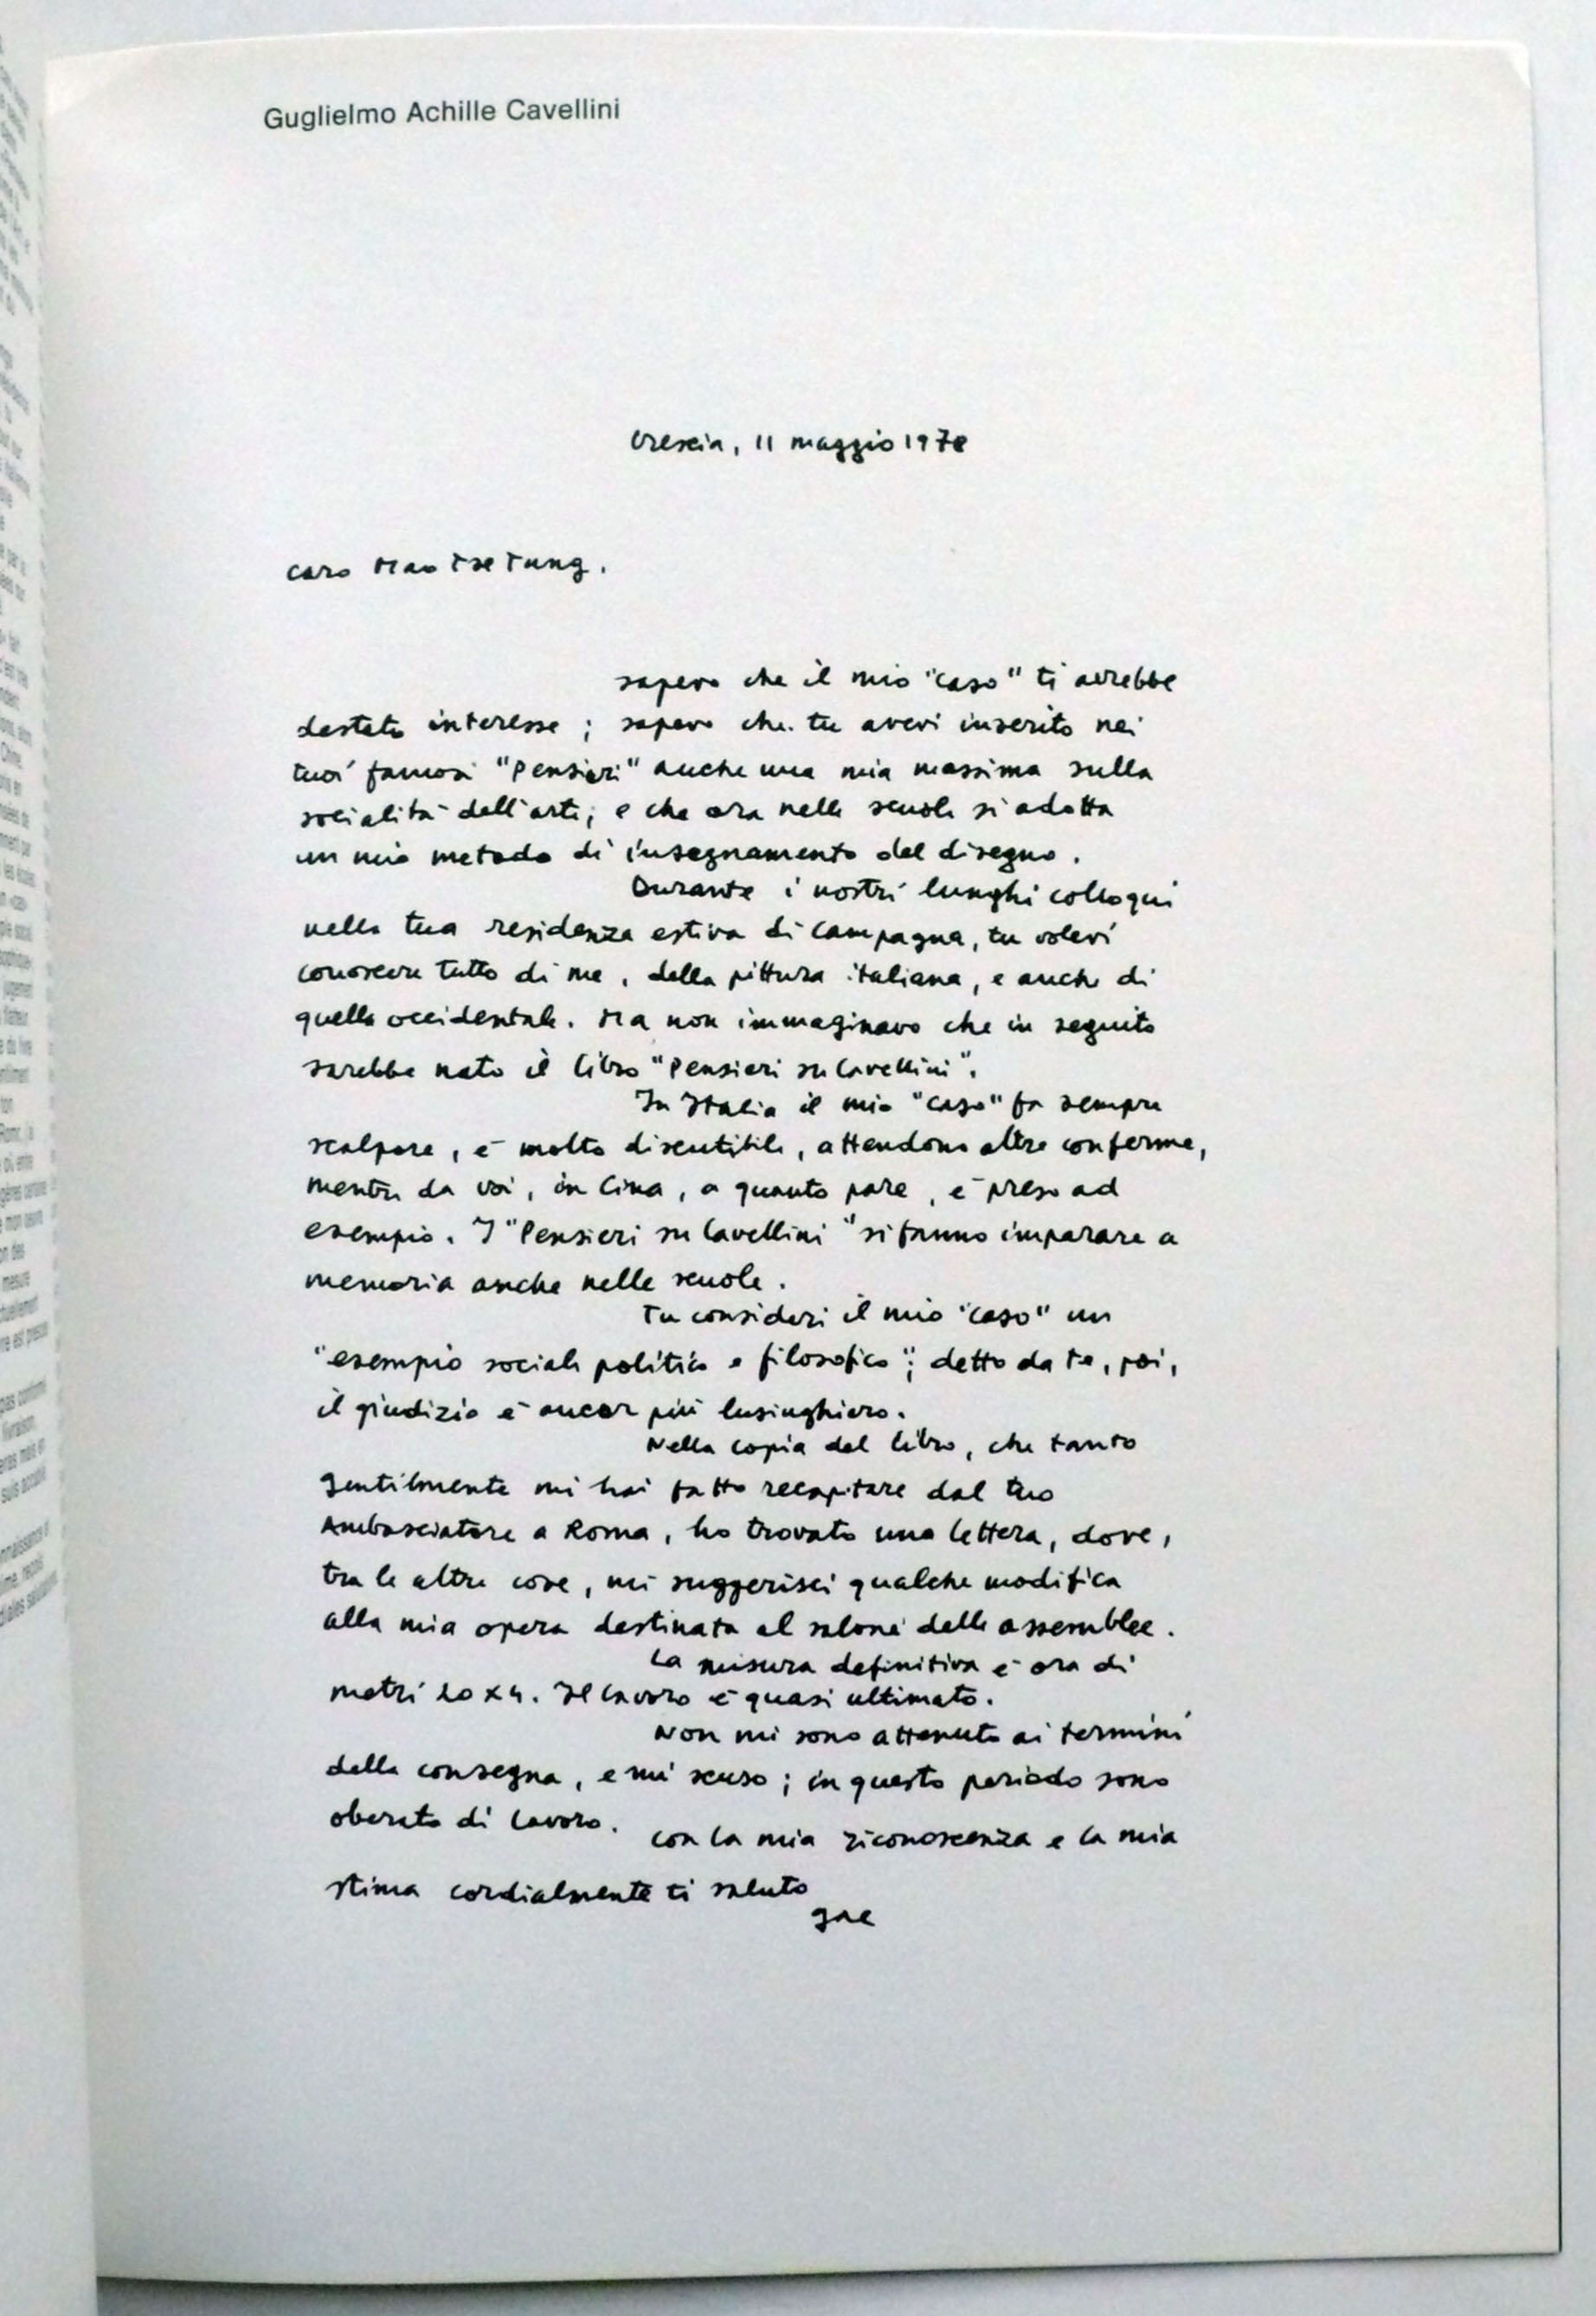 Guglielmo Achille Cavellini
Brescia, 11 maggio 1978
caro Mao Tse Tung.
sapevo che il mio "caso" ti avrebbe
destato interesse; sapevo che tu avevi inserito nei
tuoi famosi "Pensieri" anche una mia massima sulla
socialità dell'arte; e che ora nelle scuole si adotta
un mio metodo di insegnamento del disegno.
Durante i nostri lunghi colloqui
nella tua residenza estiva di campagna, tu volevi
conoscere tutto di me, della pittura italiana, e anche di
quella occidentale. Ma non immaginavo che in seguito
sarebbe nato il libro "Pensieri su Cavellini".
In Italia il mio "caso" fa sempre
scalpore, è molto discutibile, attendono altre conferme,
mentre da voi, in Cina, a quanto pare, è preso ad
esempio. I "Pensieri su Cavellini" si fanno imparare a
memoria anche nelle scuole.
Tu consideri il mio "caso" un
"esempio sociale politico e filosofico"; detto da te, poi,
il giudizio è ancor più lusinghiero.
Nella copia del libro, che tanto
gentilmente mi hai fatto recapitare dal tuo
Ambasciatore a Roma, ho trovato una lettera, dove,
tra le altre cose, mi suggerisci qualche modifica
alla mia opera destinata al salone delle assemblee.
La misura definitiva è ora di
metri 20 x 4. Il lavoro è quasi ultimato.
Non mi sono attenuto ai termini
della consegna, e mi scuso; in questo periodo sono
oberato di lavoro.
con la mia riconoscenza e la mia
stima cordialmente ti saluto
gac